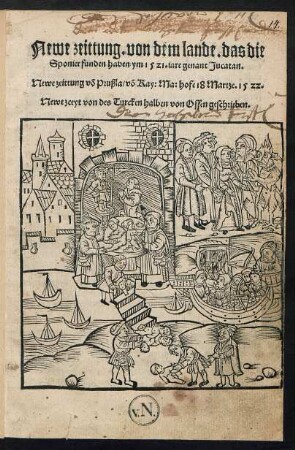 14.
Newe zeittung. von dem lande. das die
Sponier funden haben ym 1521. iare genant Jucatan.
Newe zeittung vō Prussla/ vō Kay: Ma: hofe 18 Martze. 1522.
Newe zeyt von des Turcken halben von Offen geschrieben.
v.N.